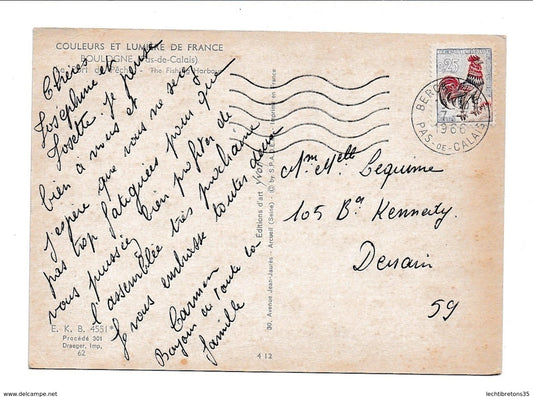 COULEURS ET LUMIÈRE DE FRANCE
BOULOGNE (Pas-de-Calais)
Port de Pêche - The Fishing Harbour
Chères
Josephine et
Josette je pense
bien à vous et
J'espère que vous ne serez
pas trop fatiguées pour que
vous puissiez bien profiter de
l'assemblée très prochaine
Je vous embrasse toutes deux
Carmen
Bonjour à toute la
famille
E. K. B. 4551
Procédé 301
Draeger, Imp.
62
412
30, Avenue Jean-Jaurès - Arcueil (Seine) - © by S.P.A.D.E.M.
Editions d'art Yvon
Imprimé en France
25
BERCK
1966
PAS-DE-CALAIS
Mme Melle Lequime
105 Bd Kennedy
Denain
59
lechtibretons35